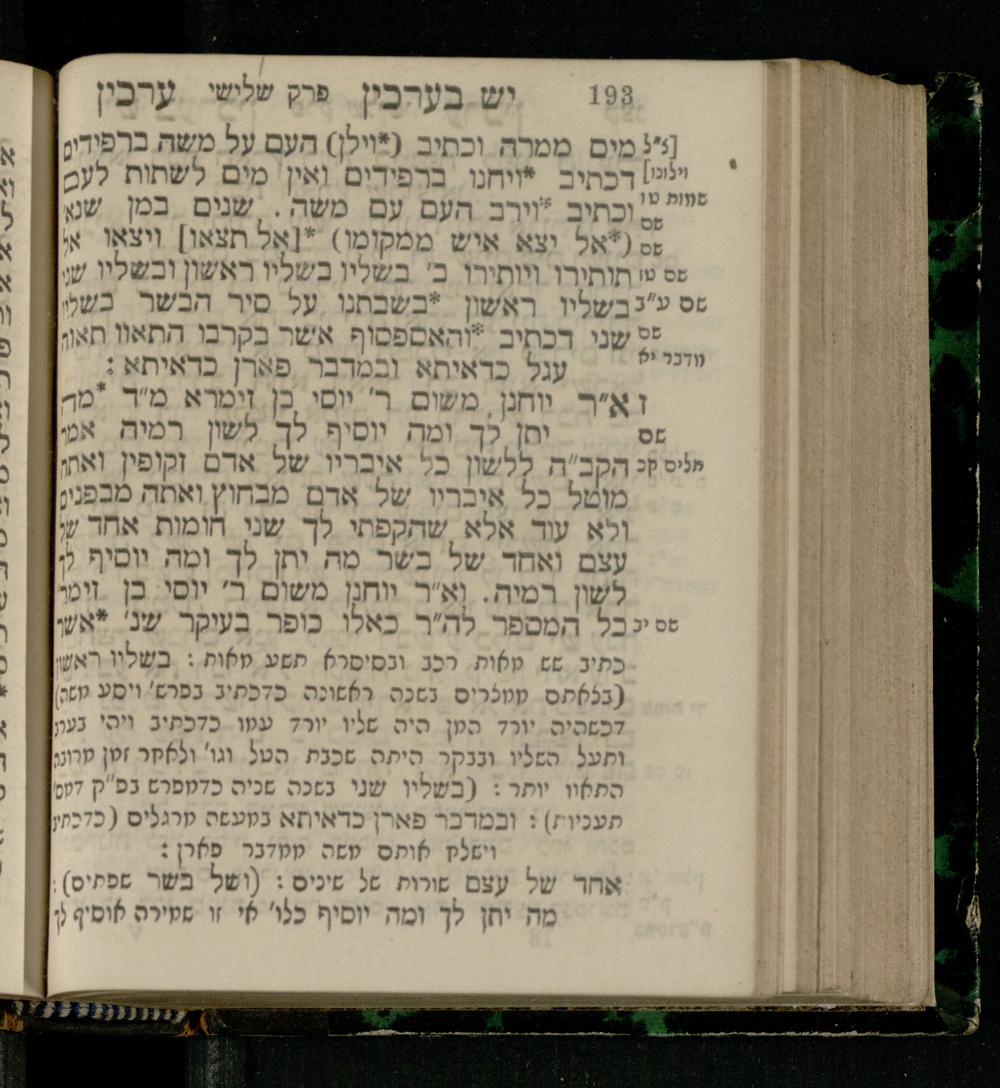 193 יש בערכין פרק שלישי ערכין
[צ"ל מים ממרה וכתיב (*וילן) העם על משה ברפידים
וילונו] דכתיב *ויחנו ברפידים ואין מים לשתות לעם
שמות טו וכתיב *וירב העם עם משה. שנים במן שנא'
שם (*אל יצא איש ממקומו) *[אל תצאו] ויצאו אל
שם טז תותירו ויותירו ב' בשליו בשליו ראשון ובשליו שני
שם ע"ב בשליו ראשון *בשבתנו על סיר הבשר בשליו
שם שני דכתיב *והאספסוף אשר בקרבו התאוו תאוה
מדבר יא עגל כדאיתא ובמדבר פארן כדאיתא:
ז א"ר יוחנן משום ר' יוסי בן זימרא מ"ד *מה
שם יתן לך ומה יוסיף לך לשון רמיה אמר
תלים קכ הקב"ה ללשון כל איבריו של אדם זקופין ואתה
מוטל כל איבריו של אדם מבחוץ ואתה מבפנים
ולא עוד אלא שהקפתי לך שני חומות אחד של
עצם ואחד של בשר מה יתן לך ומה יוסיף לך
לשון רמיה. וא"ר יוחנן משום ר' יוסי בן זימר'
שם יב כל המספר לה"ר כאלו כופר בעיקר שנ' *אשר
כתיב שש מאות רכב ובסיסרא תשע מאות: בשליו ראשון
(בצאתם ממצרים בשנה ראשונה כדכתיב בפרש' ויסע משה)
דכשהיה יורד המן היה שליו יורד עמו כדכתיב ויהי בערב
ותעל השליו ובבקר היתה שכבת הטל וגו' ולאחר זמן מרובה
התאוו יותר: (בשליו שני בשנה שניה כדמפרש בפ"ק דמס'
תעניות): ובמדבר פארן כדאיתא במעשה מרגלים (כדכתיב
וישלח אותם משה ממדבר פארן:
אחד של עצם שורות של שינים: (ושל בשר שפתים):
מה יתן לך ומה יוסיף כלו' אי זו שמירה אוסיף לך